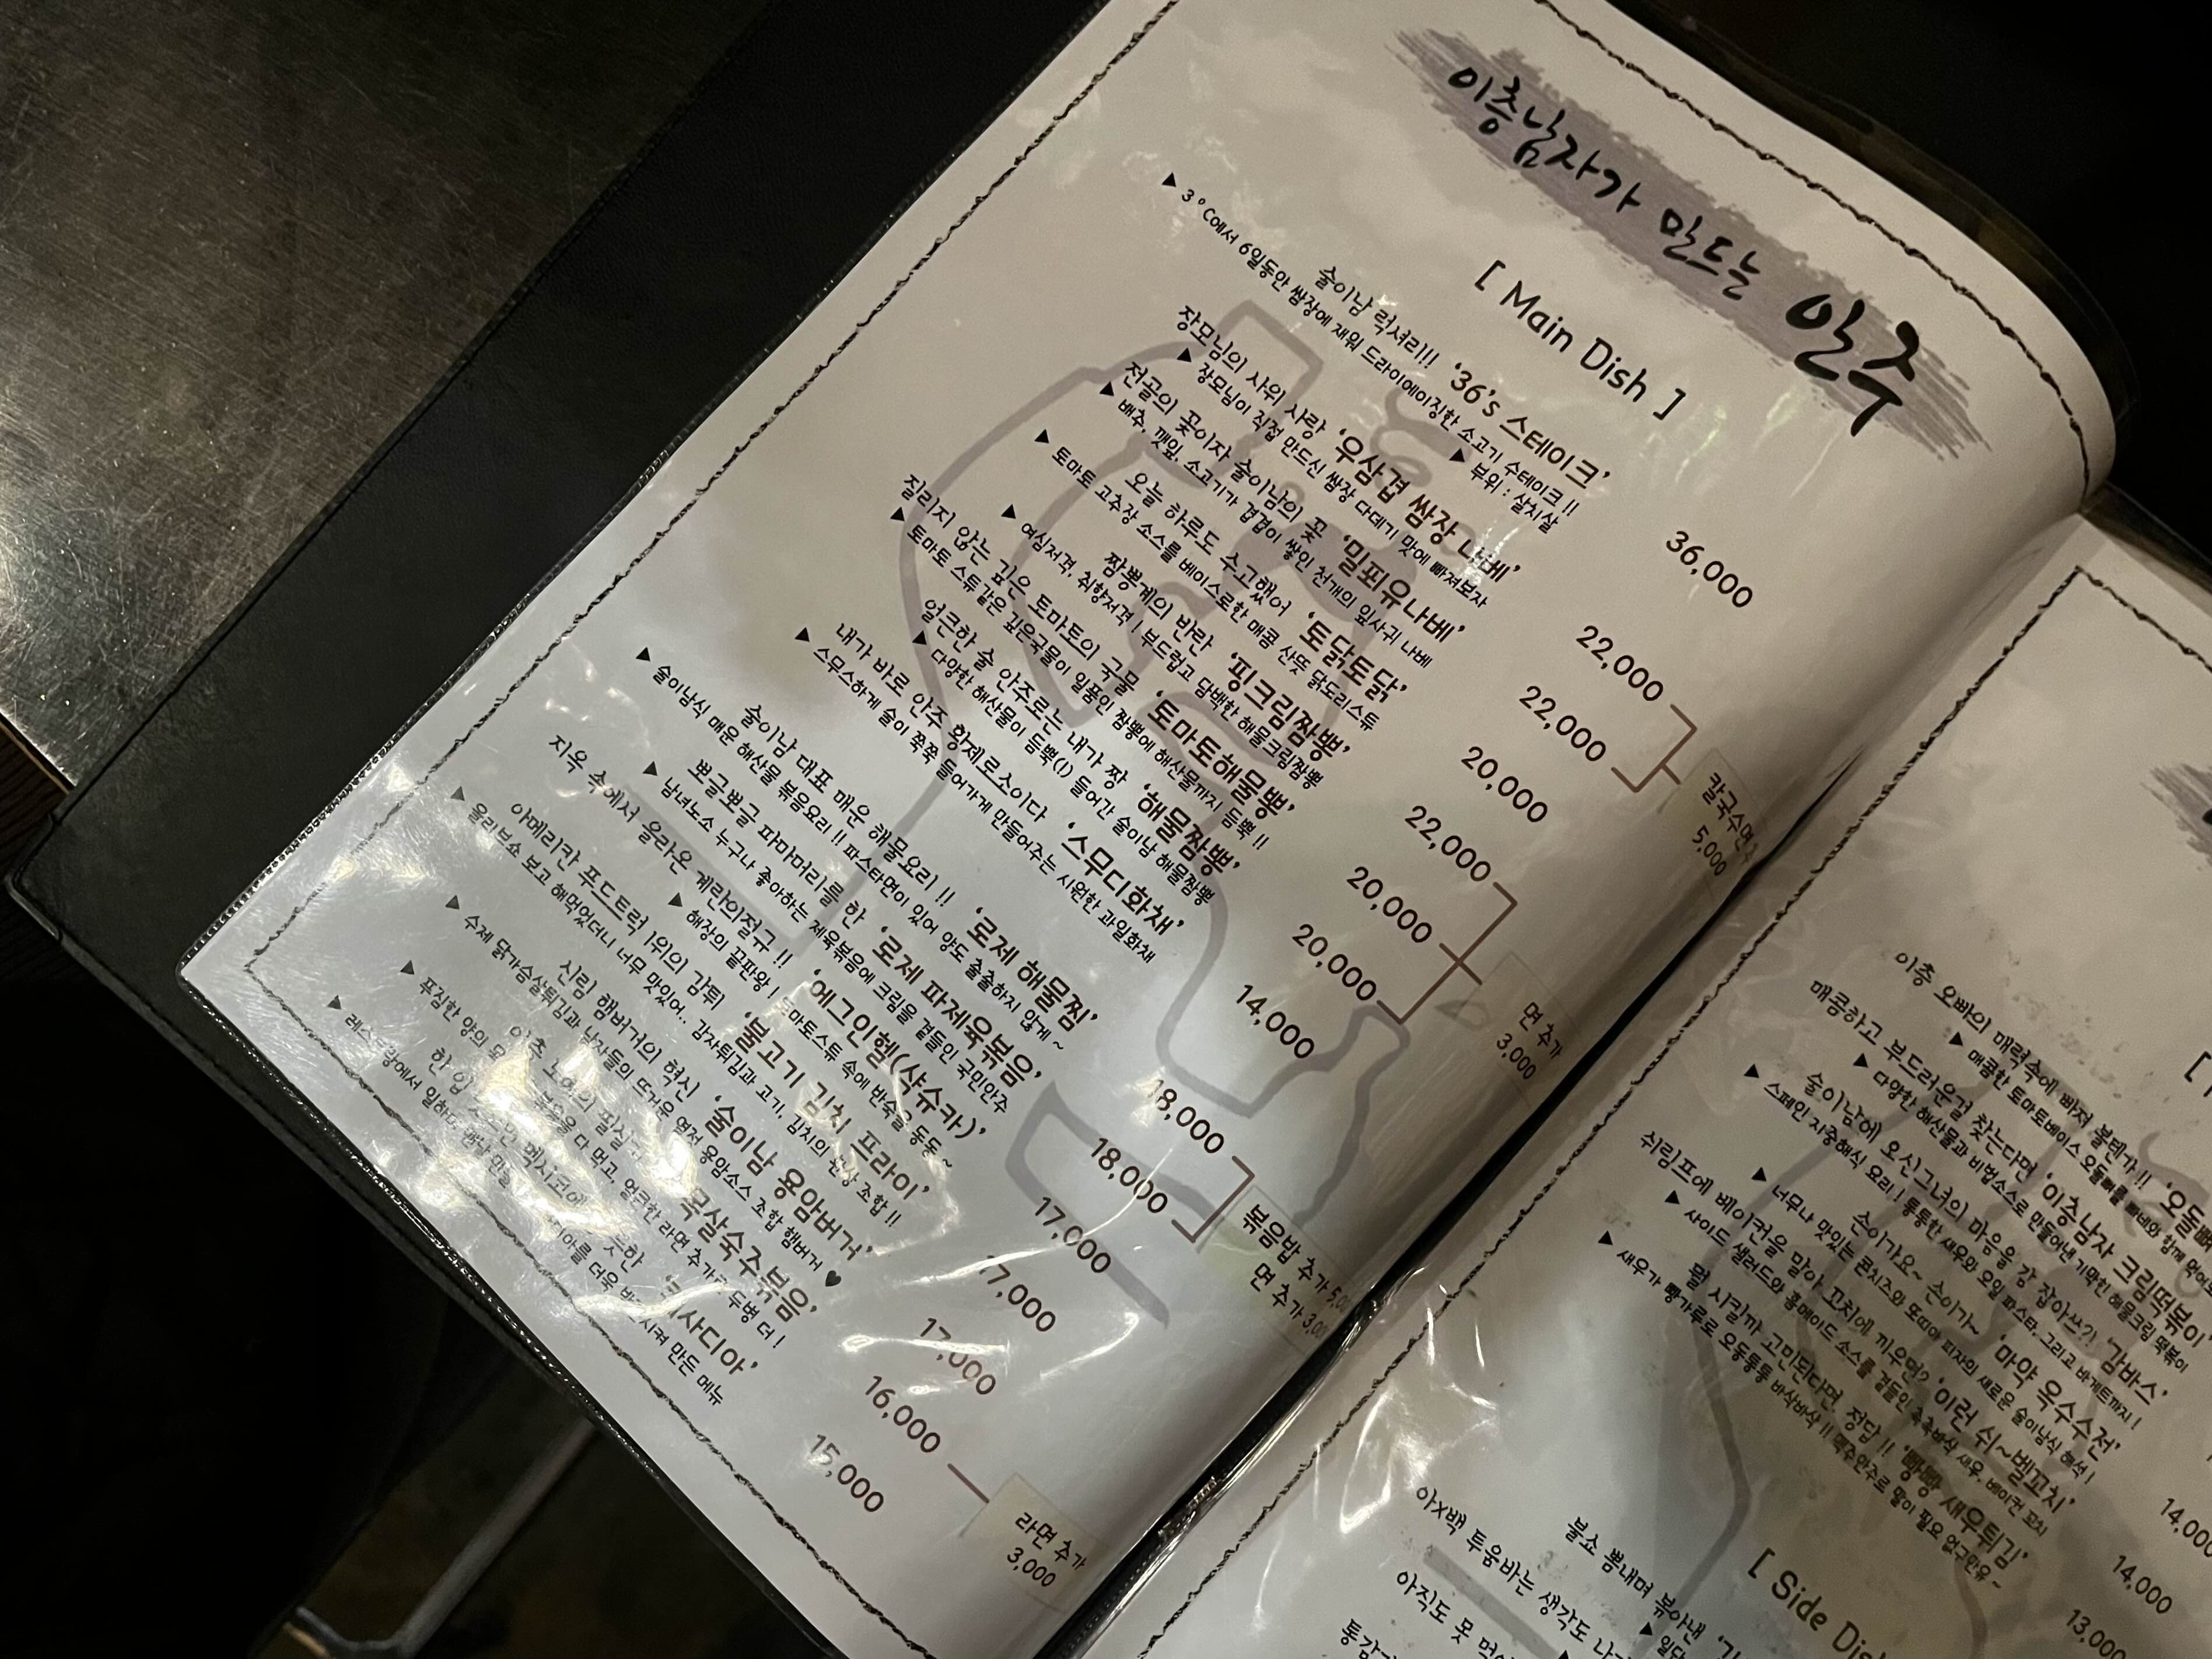 이층남자가 만드는 안주
[ Main Dish ]
술이남 럭셔리!!! '36's 스테이크' 36,000
▲ 3°C에서 6일동안 쌈장에 재워 드라이에이징한 소고기 수테이크 !!
▲ 부위 : 살치살
장모님의 사위 사랑 '우삼겹 쌈장 나베' 22,000
▲ 장모님이 직접 만드신 쌈장 다데기 맛에 빠져보자
전골의 꽃이자 술이남의 꽃 '밀푀유나베' 22,000
▲ 배추, 깻잎, 소고기가 겹겹이 쌓인 천개의 잎사귀 나베
칼국수면
5,000
오늘 하루도 수고했어 '토닭토닭' 20,000
▲ 토마토 고추장 소스를 베이스로한 매콤 산뜻 닭도리스튜
짬뽕계의 반란 '핑크림짬뽕' 22,000
▲ 여심저격, 취향저격 ! 부드럽고 담백한 해물크림짬뽕
질리지 않는 깊은 토마토의 국물 '토마토해물뽕' 20,000
▲ 토마토 스튜같은 깊은국물이 일품인 짬뽕에 해산물까지 듬뿍 !!
얼큰한 술 안주로는 내가 짱 '해물짬뽕' 20,000
▲ 다양한 해산물이 듬뿍(!) 들어간 술이남 해물짬뽕
면 추가
3,000
내가 바로 안주 황제로소이다 '스무디화채' 14,000
▲ 스무스하게 술이 쭉쭉 들어가게 만들어주는 시원한 과일화채
술이남 대표 매운 해물요리 !! '로제 해물찜' 18,000
▲ 술이남식 매운 해산물 볶음요리 !! 파스타면이 있어 양도 출출하지 않게 ~
뽀글뽀글 파마머리를 한 '로제 파제육볶음' 18,000
▲ 남녀노소 누구나 좋아하는 제육볶음에 크림을 곁들인 국민안주
볶음밥 추가 5,00
면 추가 3,00
지옥 속에서 올라온 계란의절규 !! '에그인헬(샥슈카)' 17,000
▲ 해장의 끝판왕 ! 토마토스튜 속에 반숙을 동동 ~
아메리칸 푸드트럭 1위의 감튀 '불고기 김치 프라이' 17,000
▲ 올리브쇼 보고 해먹었더니 너무 맛있어.. 감자튀김과 고기, 김치의 환상 조합 !!
신림 햄버거의 혁신 '술이남 용암버거' 17,000
▲ 수제 닭가슴살튀김과 남자들의 뜨거운 열정 용암소스 조합 햄버거 ♥
이층 목살숙주볶음' 16,000
▲ 푸짐한 양의 볶음을 다 먹고, 얼큰한 라면 추가로 두병 더 !
라면 추가
3,000
한 입 멕시코에 사디아' 15,000
▲ 레스토랑에서 일하며 만들 더욱 만든 메뉴
이층 오빠의 매력속에 빠져 볼텐가 !! '오돌
▲ 매콤한 토마토베이스 오돌뼈를 빠네와 함께
매콤하고 부드러운걸 찾는다면 '이층남자 크림떡볶이'
▲ 다양한 해산물과 비법소스로 만들어낸 기막힌 해물크림 떡볶이
술이남에 오신그녀의 마음을 감 잡아쓰?! '감바스'
▲ 스페인 지중해식 요리 ! 통통한 새우와 오일 파스타, 그리고 바게트까지 !
손이가요~ 손이가~ '마약 옥수수전'
▲ 너무나 맛있는 콘치즈와 또띠아 피자의 새로운 술이남식 해석 !
쉬림프에 베이컨을 말아 꼬치에 끼우면? '이런 쉬~벨꼬치' 14,000
▲ 사이드 샐러드와 홈메이드 소스를 곁들인 촉촉바삭 새우, 베이컨 꼬치
뭘 시킬까 고민된다면 정답 !! '빵빵 새우튀김' 14,000
▲ 새우가 빵가루로 오동통통 바삭바삭 !! 맥주안주로 말이 필요 없구만유~
13,000
[ Side Dis
불쇼 뽐내며 볶아낸
▲ 일단
아X백 투움바는 생각도 나
아직도 못
통감